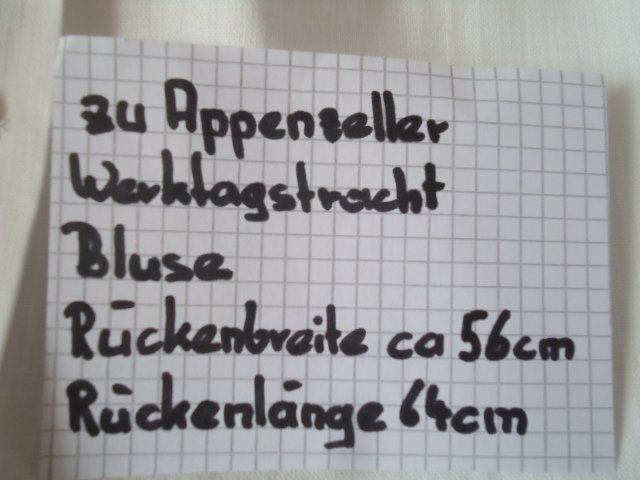 zu Appenzeller
Werktagstracht
Bluse
Rückenbreite ca 56cm
Rückenlänge 64cm